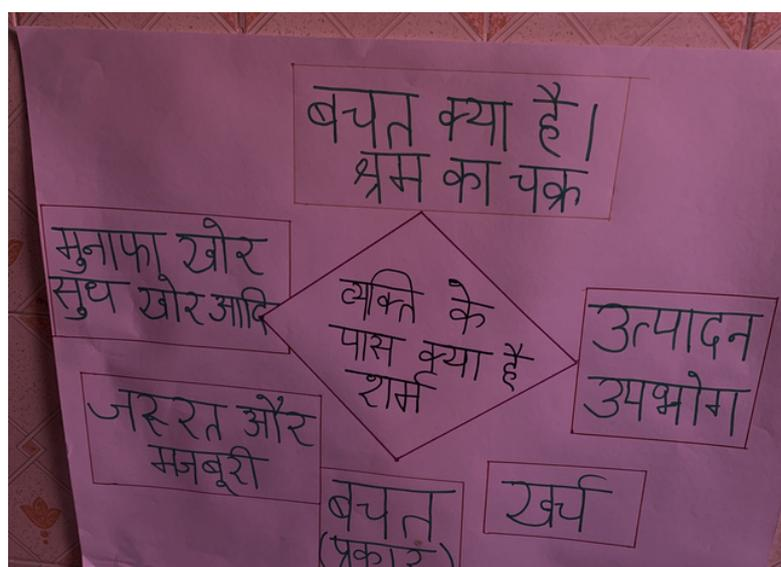 बचत क्या है।
श्रम का चक्र
मुनाफा खोर
सुध खोर आदि
व्यक्ति के
पास क्या है
शर्म
उत्पादन
उपभोग
जरुरत और
मजबूरी
बचत
(प्रकार)
खर्च